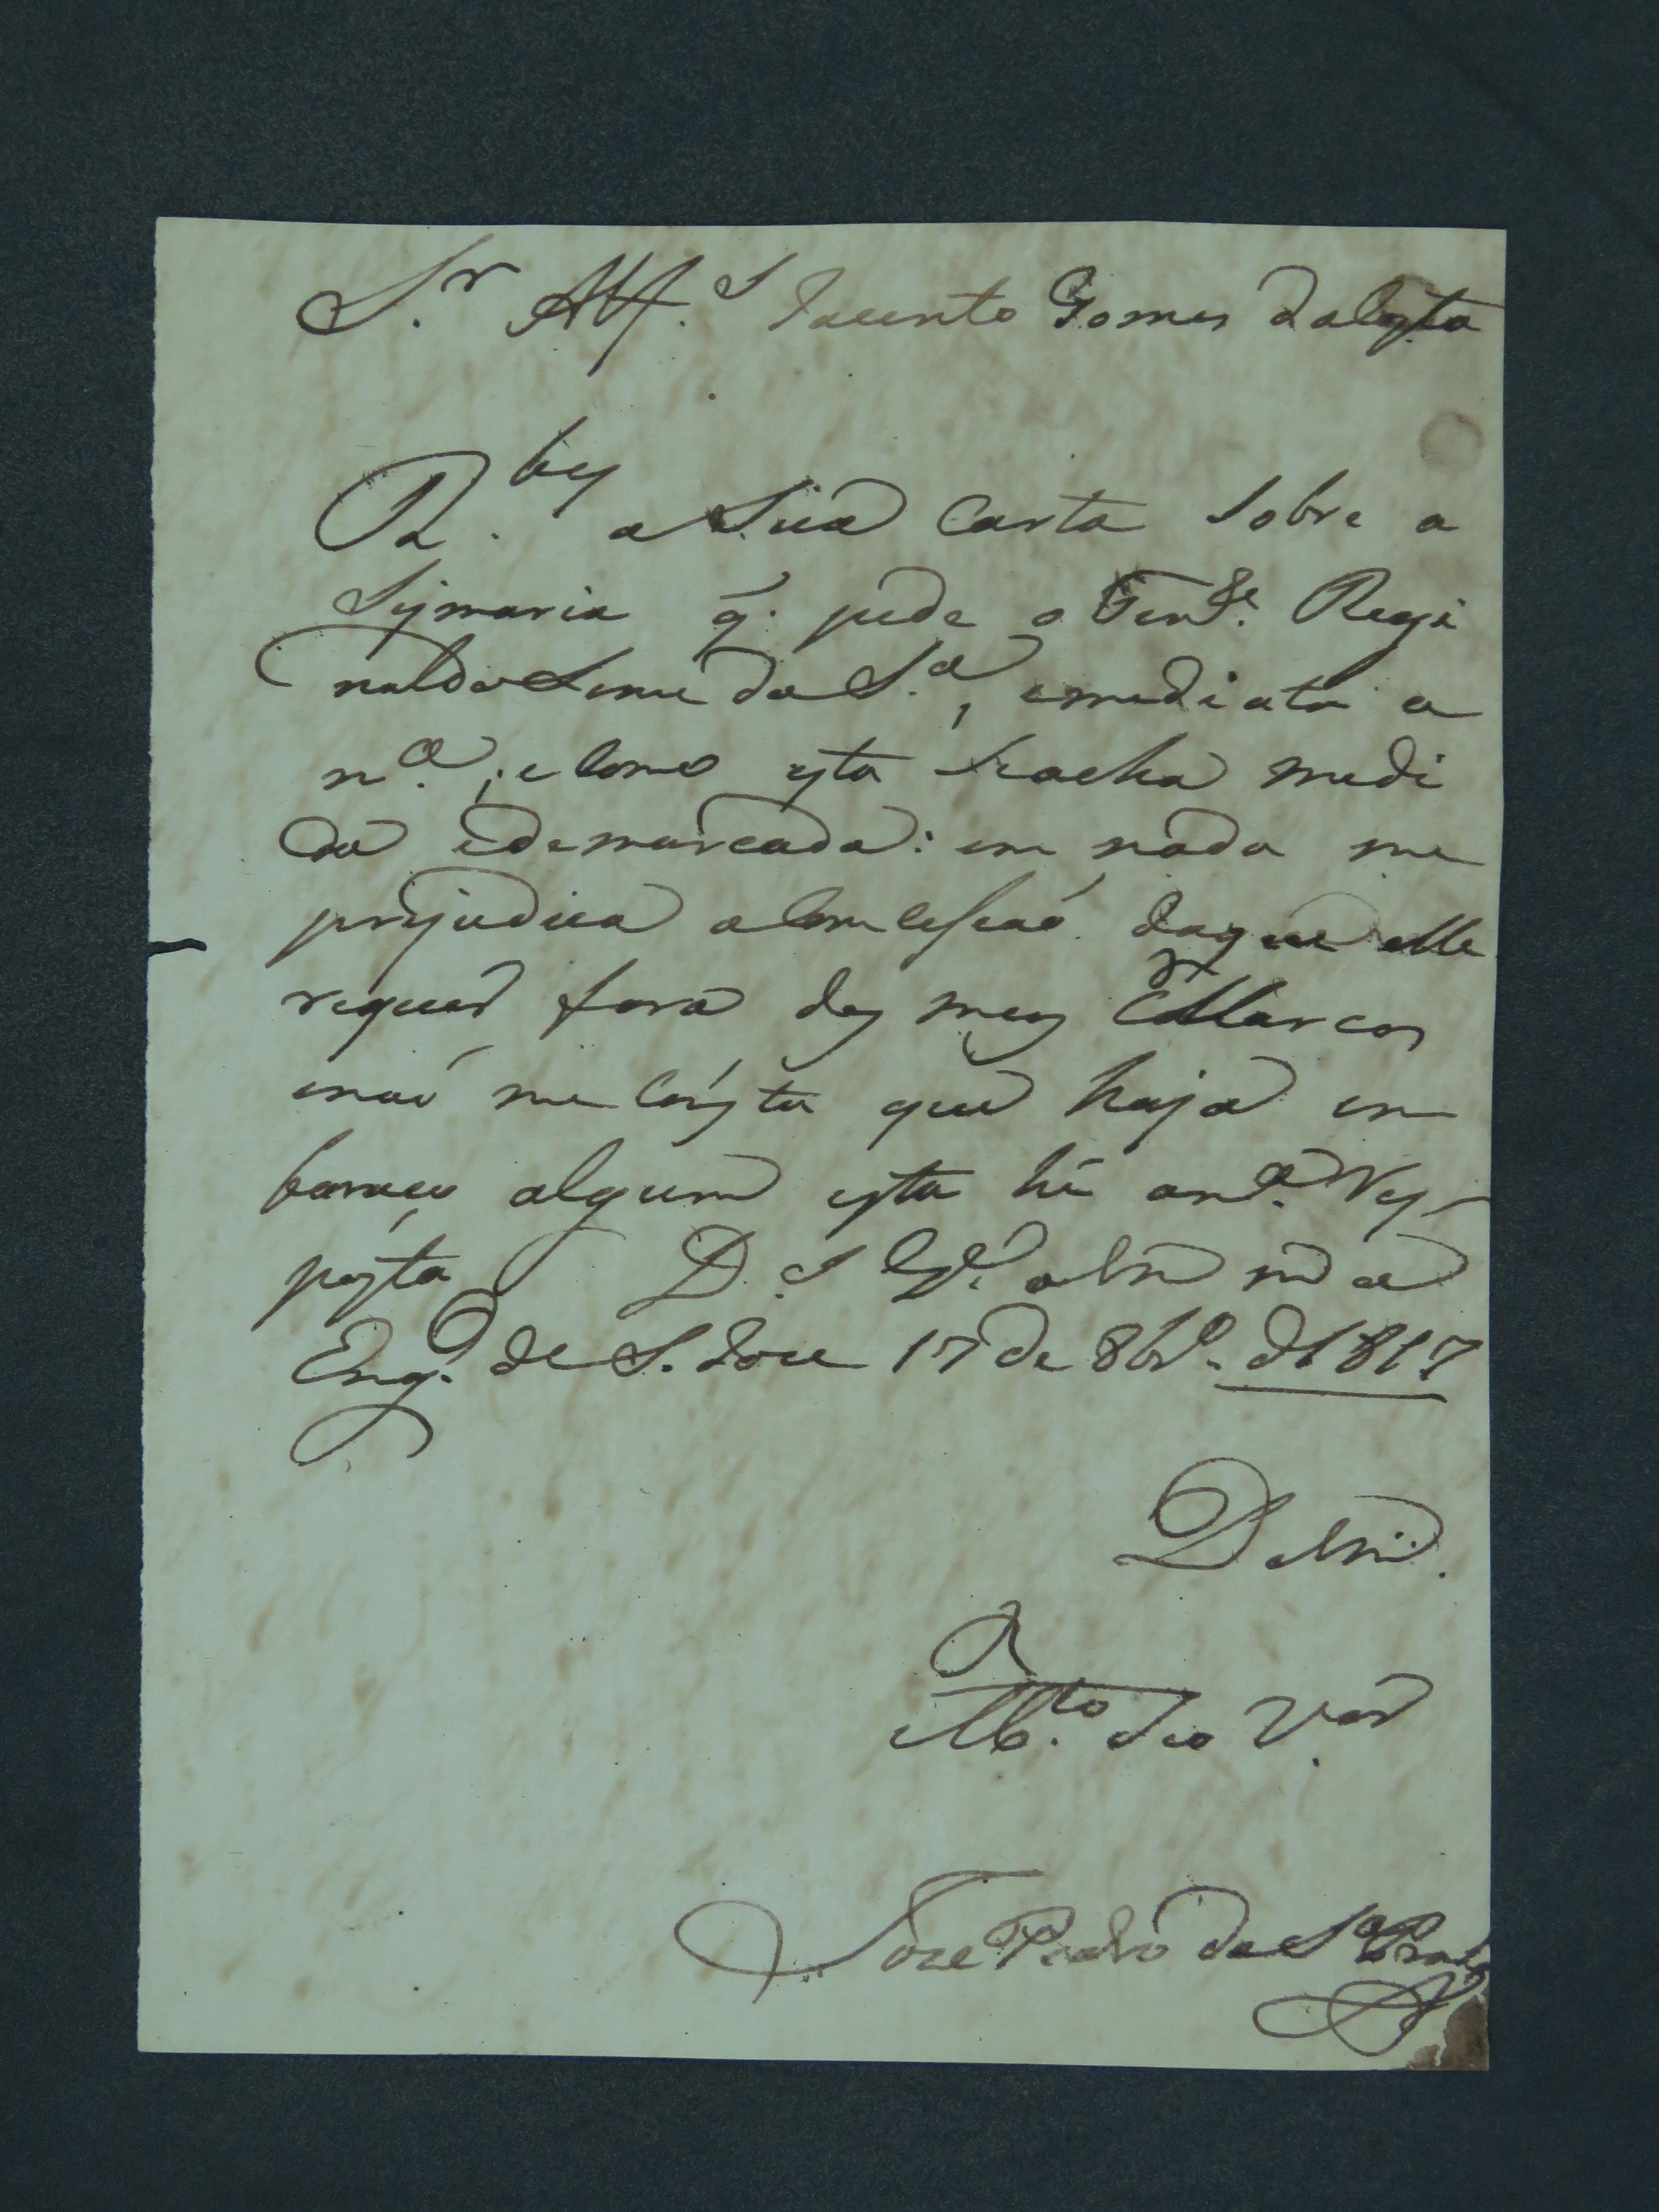 S.r Alf.s Jacinto Gomes daCosta
R.by a Sua Carta Sobre a
Sismaria q̃. pede o Ten.te Regi
naldo Leme da S.a, emediata a
m.a, e Como esta Seacha medi
da edemarcada: em nada me
prejudica aConceSsaó daque elle
requer fora dos meus Marcos
enaó me Consta que haja em
baraço algum esta hé am.a Res-
posta D.s G.e a Vm m.s a.s
Eng.o de S. Joze 17 de 8br.o d1817
De Vm.
M.to Seo Ven.or
Joze Pedro da S.a